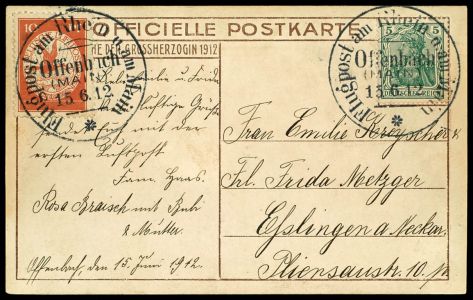 OFFICIELLE POSTKARTE
HE DER GROSSHERZOGIN 1912
10
5
5
Flugpost am Rhein u. am Main
Offenbach
(MAIN)
15.6.12
Flugpost am Rhein u. am Main
Offenbach
(MAIN)
15.6.12
luftige Grüße
sendet Euch mit der
ersten Luftpost
Fam. Haas.
Rosa Braisch mit Bubi
& Mutter.
Offenbach, den 15. Juni 1912.
Frau Emilie Kreyscher &
Frl. Frida Metzger
Esslingen a/Neckar.
Pliensaustr. 10.